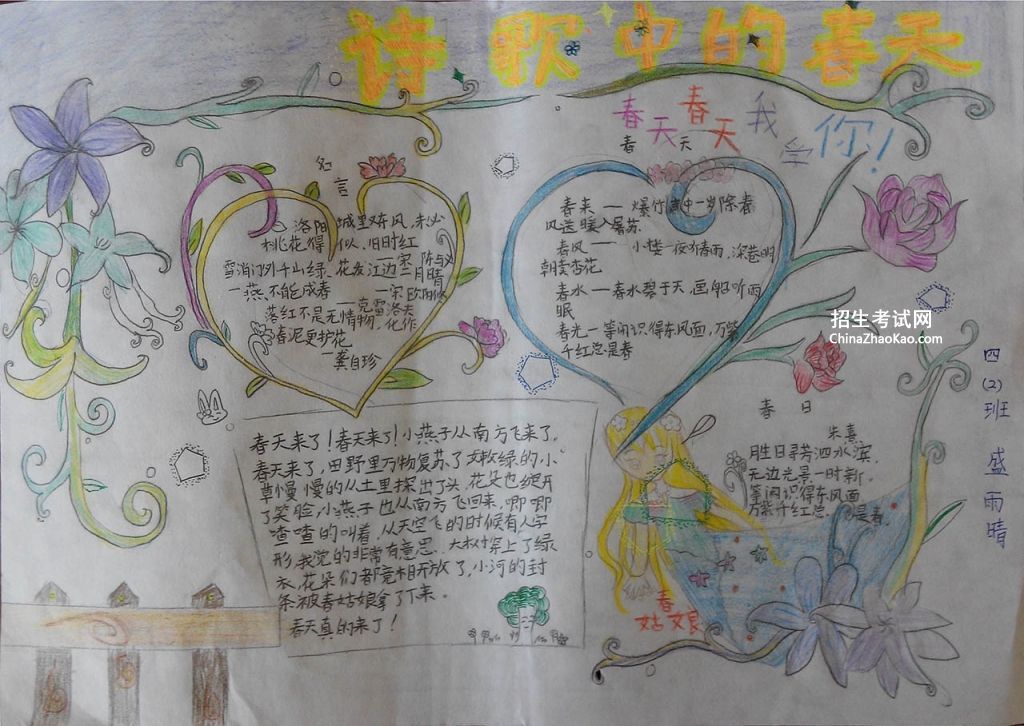 诗歌中的春天
春天春天我学你!
名言
春天
洛阳城里又东风,未必
桃花得似,旧时红
一宋 陈与义
雪消门外千山绿、花发江边二月晴
一宋欧阳修
一燕不能成春
一克雷洛夫
落红不是无情物 化作
春泥更护花
一龚自珍
春来一爆竹声中一岁除春
风送暖入屠苏.
春风一 小楼一夜听春雨,深巷明
朝卖杏花
春水一春水碧于天,画船听雨
眠
春光一等闲识得东风面,万紫
千红总是春
招生考试网
ChinaZhaoKao.com
四(2)班 盛雨晴
春日
朱熹
胜日寻芳泗水滨,
无边光景一时新。
等闲识得东风面
万紫千红总 是春。
春天来了!春天来了!小燕子从南方飞来了。
春天来了,田野里万物复苏了嫩绿的小
草慢慢的从土里探出了头,花朵也绽开
了笑脸,小燕子也从南方飞回来,唧唧
喳喳的叫着,从天空飞的时候有人字
形,我觉的非常有意思.大树穿上了绿
衣,花朵们都竞相开放了,小河的封
条被春姑娘拿了下来。
春天真的来了!
春
姑娘